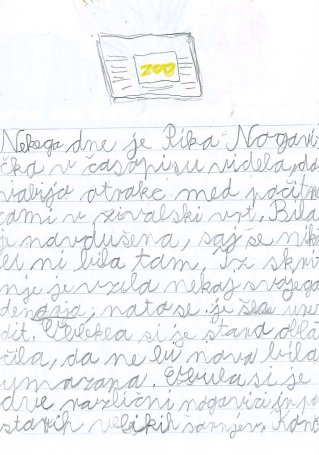 ZOO
Nekega dne je Pika Nogavi
čka v časopisu videla, da
vabijo otroke med počitni
cami v živalski vrt. Bila
je navdušena, saj se nikoli
ni bila tam. Iz skri
nje je vzela nekaj svojega
denarja, nato se je šla ure
dit. Oblekla si je stara obla
čila, da ne bi nova bila
umazana. Obula si je
dve različni nogavici in par
starih velikih šornjev. Konč